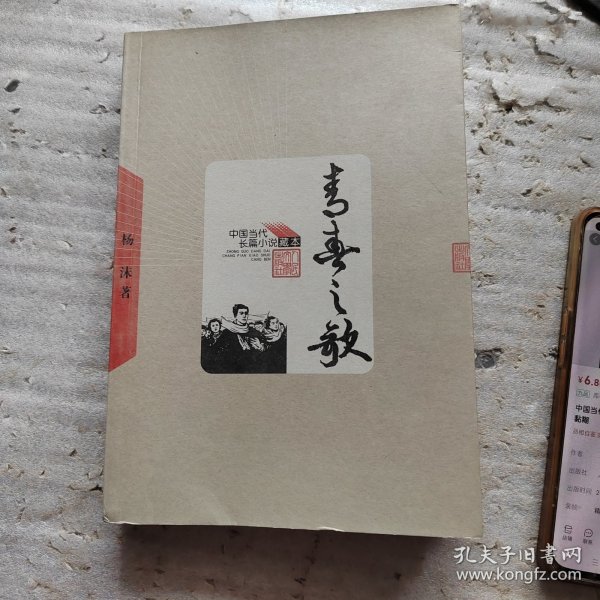 青春之歌
中国当代
长篇小说藏本
ZHONG GUO DANG DAI
CHANG PIAN XIAO SHUO
CANG BEN
杨沫著
¥6.8
九品
中国当代
黏糊
作者
出版社
出版时间
装帧
店铺
客服
孔夫子旧书网
www.kongfz.com